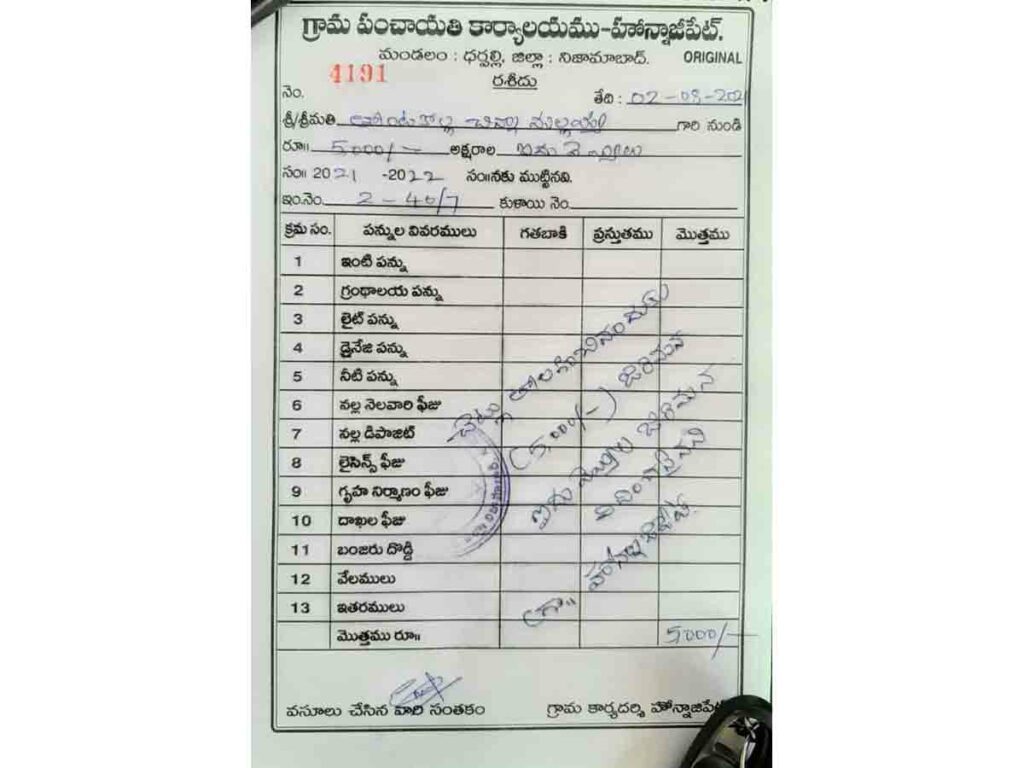 గ్రామ పంచాయతి కార్యాలయము-హోన్నాజీపేట్.
మండలం : ధర్పల్లి, జిల్లా : నిజామాబాద్. ORIGINAL
4191
రశీదు
నెం. తేది : 02-08-2021
శ్రీ/శ్రీమతి చిన్న మల్లయ్య గారి నుండి
రూ॥ 5000/- అక్షరాల ఐదు వేలు
సం॥ 2021 -2022 సం॥నకు ముట్టినవి.
ఇం.నెం. 2-40/7 కుళాయి నెం.
క్రమ సం. పన్నుల వివరములు గతబాకి ప్రస్తుతము మొత్తము
1 ఇంటి పన్ను
2 గ్రంథాలయ పన్ను
3 లైట్ పన్ను
4 డ్రైనేజి పన్ను
5 నీటి పన్ను
6 నల్ల నెలవారి ఫీజు
7 నల్ల డిపాజిట్
8 లైసెన్స్ ఫీజు
9 గృహ నిర్మాణం ఫీజు
10 దాఖల ఫీజు
11 బంజరు దొడ్డి
12 వేలములు
13 ఇతరములు
చెట్లు తొలగించినందుకు
(5,000/-) జరిమాన
ఐదు వేల జరిమాన
గ్రా॥ హోన్నాజీపేట్.
మొత్తము రూ॥ 5000/-
వసూలు చేసిన వారి సంతకం గ్రామ కార్యదర్శి హోన్నాజీపేట్